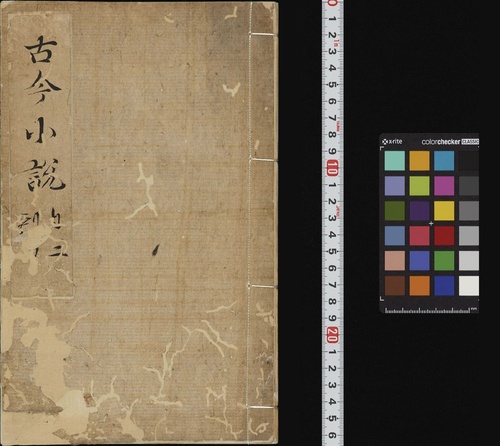 古今小說
二
x-rite
colorchecker CLASSIC
0
1
2
3
4
5
6
7
8
9
10
1
2
3
4
5
6
7
8
9
20
1
2
3
4
5
6
mm